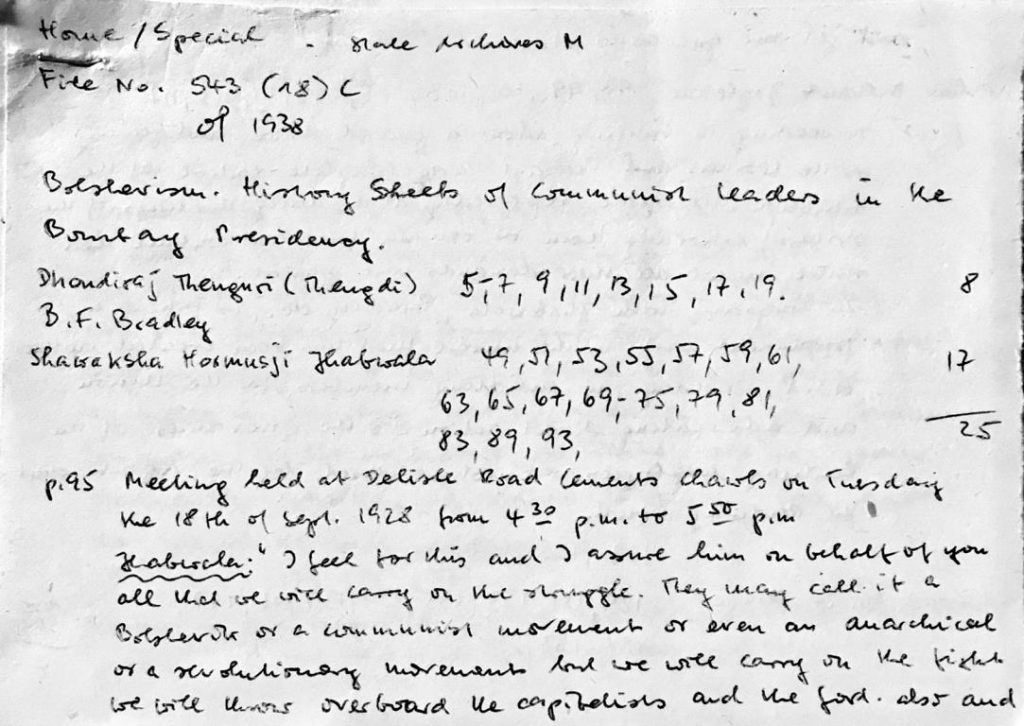 Home / Special - State Archives M
File No. 543 (18) C
of 1938
Bolshevism. History Sheets of Communist Leaders in the
Bombay Presidency.
Dhondiraj Thenguri (Thengdi) 5, 7, 9, 11, 13, 15, 17, 19. 8
B.F. Bradley
Shavaksha Hormusji Jhabwala 49, 51, 53, 55, 57, 59, 61, 17
63, 65, 67, 69-75, 79, 81,
83, 89, 93, 25
p.95 Meeting held at Delisle Road Cements Chawls on Tuesday
the 18th of Sept. 1928 from 4 30 p.m. to 5 50 p.m
Jhabwala: "I feel for this and I assure him on behalf of you
all that we will carry on the struggle. They may call it a
Bolshevik or a communist movement or even an anarchical
or a revolutionary movement but we will carry on the fight
we will throw overboard the capitalists and the also and